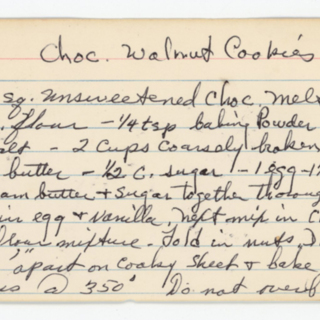 Choc. Walnut Cookies
sq. unsweetened Choc Mel
flour - 1/4 tsp baking Powder
- 2 Cups Coarsely broken
butter - 1/2 c. sugar - 1 egg - 1
butter & Sugar together thoroug
in egg & vanilla, next mix in C
flour mixture. Fold in nuts.
1" apart on Cooky Sheet & bake
@ 350° Do not over